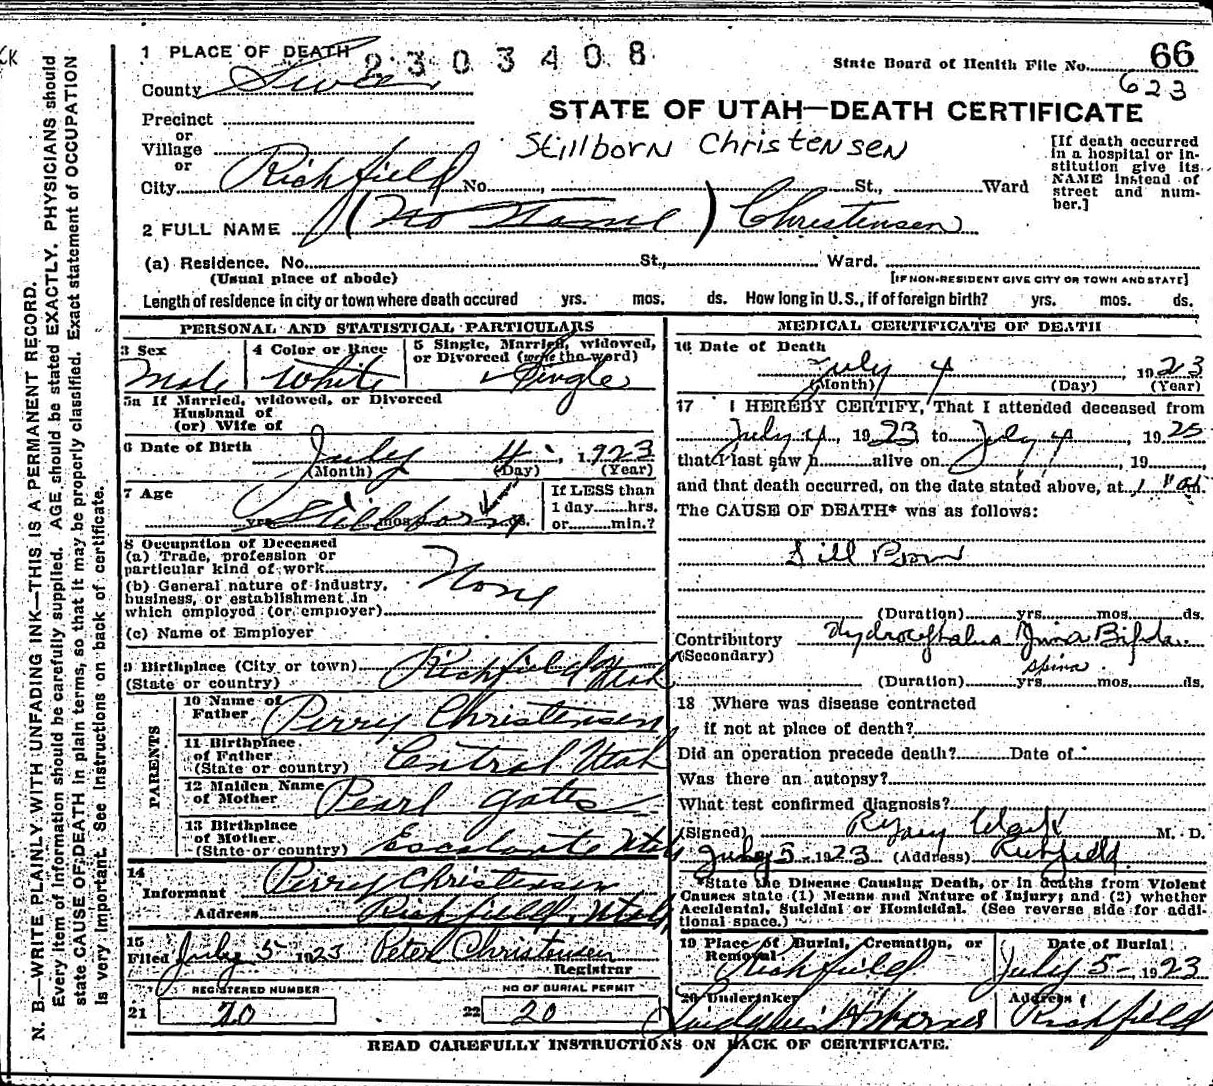 1 PLACE OF DEATH
2303408
State Board of Health File No. 66
623
County Sevier
STATE OF UTAH—DEATH CERTIFICATE
Precinct
or
Village
or
City Richfield No. , St., Ward
Stillborn Christensen
[If death occurred
in a hospital or in-
stitution give its
NAME instead of
street and num-
ber.]
2 FULL NAME (No Name) Christensen
(a) Residence. No. St., Ward.
(Usual place of abode) [IF NON-RESIDENT GIVE CITY OR TOWN AND STATE]
Length of residence in city or town where death occured yrs. mos. ds. How long in U.S., if of foreign birth? yrs. mos. ds.
PERSONAL AND STATISTICAL PARTICULARS
3 Sex
Male
4 Color or Race
White
5 Single, Married, widowed,
or Divorced (write the word)
Single
5a If Married, widowed, or Divorced
Husband of
(or) Wife of
6 Date of Birth July 4, 1923
(Month) (Day) (Year)
7 Age
Stillborn
yrs. mos. ds.
If LESS than
1 day hrs.
or min.?
8 Occupation of Deceased
(a) Trade, profession or
particular kind of work None
(b) General nature of industry,
business, or establishment in
which employed (or employer)
(c) Name of Employer
9 Birthplace (City or town) Richfield Utah
(State or country)
PARENTS
10 Name of
Father Perry Christensen
11 Birthplace
of Father Central Utah
(State or country)
12 Maiden Name
of Mother Pearl Gates
13 Birthplace
of Mother Escalante Utah
(State or country)
14
Informant Perry Christensen
Address Richfield, Utah
15
Filed July 5 1923 Peter Christensen
Registrar
REGISTERED NUMBER
21 20
NO OF BURIAL PERMIT
22 20
MEDICAL CERTIFICATE OF DEATH
16 Date of Death
July 4, 1923
(Month) (Day) (Year)
17 I HEREBY CERTIFY, That I attended deceased from
July 4, 1923 to July 4, 1925
that I last saw h alive on , 19
and that death occurred, on the date stated above, at 1
The CAUSE OF DEATH* was as follows:
Still Born
(Duration) yrs. mos. ds.
Contributory Hydrocephalus Bifida
(Secondary) spina
(Duration) yrs. mos. ds.
18 Where was disease contracted
if not at place of death?
Did an operation precede death? Date of
Was there an autopsy?
What test confirmed diagnosis?
(Signed) M. D.
July 5 1923 (Address) Richfield
*State the Disease Causing Death, or in deaths from Violent
Causes state (1) Means and Nature of Injury; and (2) whether
Accidental, Suicidal or Homicidal. (See reverse side for addi-
tional space.)
19 Place of Burial, Cremation, or
Removal
Richfield
Date of Burial
July 5- 1923
20 Undertaker
Address
Richfield
READ CAREFULLY INSTRUCTIONS ON BACK OF CERTIFICATE.
N. B.—WRITE PLAINLY WITH UNFADING INK—THIS IS A PERMANENT RECORD.
Every item of information should be carefully supplied. AGE should be stated EXACTLY. PHYSICIANS should
state CAUSE OF DEATH in plain terms, so that it may be properly classified. Exact statement of OCCUPATION
is very important. See instructions on back of certificate.